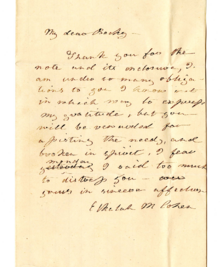 My dear Becky
Thank you for the
note and its inclosure, I
am under so many obliga
tions to you I know not
in which way to express
my gratitude, but you
will be rewarded for
assisting the needy, and
broken in spirit. I fear
monday
yesterday I said too much
to distress you
yours in sincere affection
M Cohen